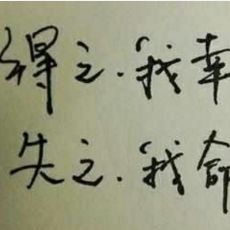 得之.我幸
失之.我命